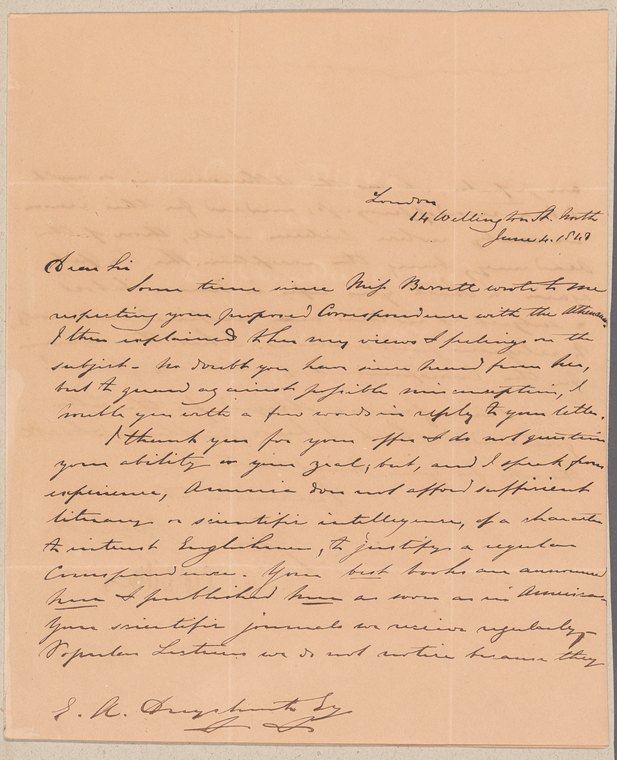 London
14 Wellington St. North
June 4. 184
Dear Sir
Some time since Miss Barrett wrote to me
respecting your proposed Correspondence with the Athenæum.
I then explained to her my views & feelings on the
subject - no doubt you have since heard from her,
but to guard against possible misconception, I
trouble you with a few words in reply to your letter.
I thank you for your offer & do not question
your ability or your zeal; but, and I speak from
experience, America does not afford sufficient
literary or scientific intelligence, of a character
to interest Englishmen, to justify a regular
Correspondence. Your best books are announced
here & published here as soon as in America
Your scientific journals we receive regularly,
Popular Lectures we do not notice because they
E. A. Duyckinck Esq